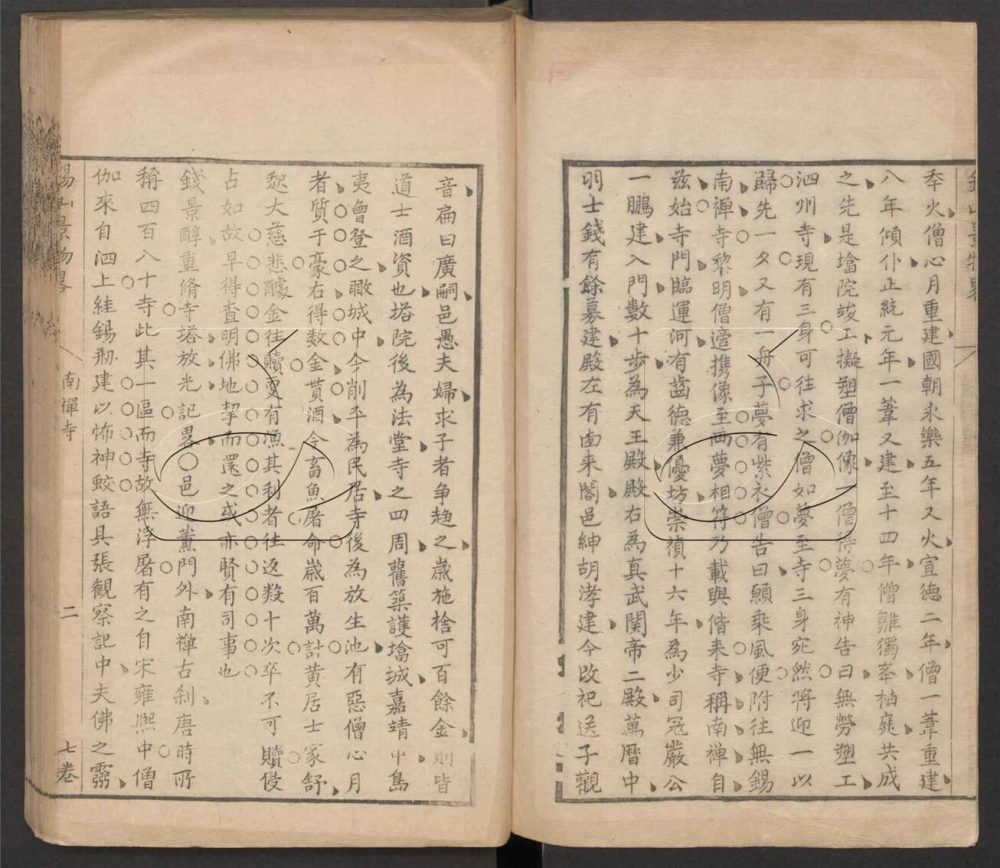 奉火僧心月重建國朝永樂五年又火宣德二年僧一葦重建
八年傾仆正統元年一葦又建至十四年僧離獨峯栢庭共成
之先是墖院竣工擬塑僧伽像一僧得夢有神告曰無勞塑工
泗州寺現有三身可往求之僧如夢至寺三身宛然將迎一以
歸先一夕又有一舟子夢有紫衣僧告曰願乘風便附往無錫
南禪寺黎明僧適携像至兩夢相符乃載與偕来寺稱南禪自
兹始寺門臨運河有齒德兼憂坊崇禎十六年為少司冦嚴公
一鵬建入門數十步為天王殿殿右為真武關帝二殿萬曆中
明士錢有餘募建殿左有由来閣邑紳胡涍建今改祀送子觀
音扁曰廣嗣邑愚夫婦求子者争趋之歲施捨可百餘金則皆
道士酒資也塔院後為法堂寺之四周舊築護墖城嘉靖中島
夷會登之瞰城中今削平為民居寺後為放生池有惡僧心月
者質于豪右得数金貰酒令畜魚屠命嵗百萬計黄居士家舒
魏大慈悲醵金往贖更有漁其利者往返数十次卒不可贖侵
占如故早得查明佛地契而還之或亦賢有司事也
錢景醇重脩寺塔放光記畧〇邑迎薰門外南禅古刹唐時所
稱四百八十寺此其一區而寺故無浮屠有之自宋雍熙中僧
伽來自泗上絓錫刱建以怖神蛟語具張觀察記中夫佛之靈
錫山景物畧
南禪寺
二
七卷